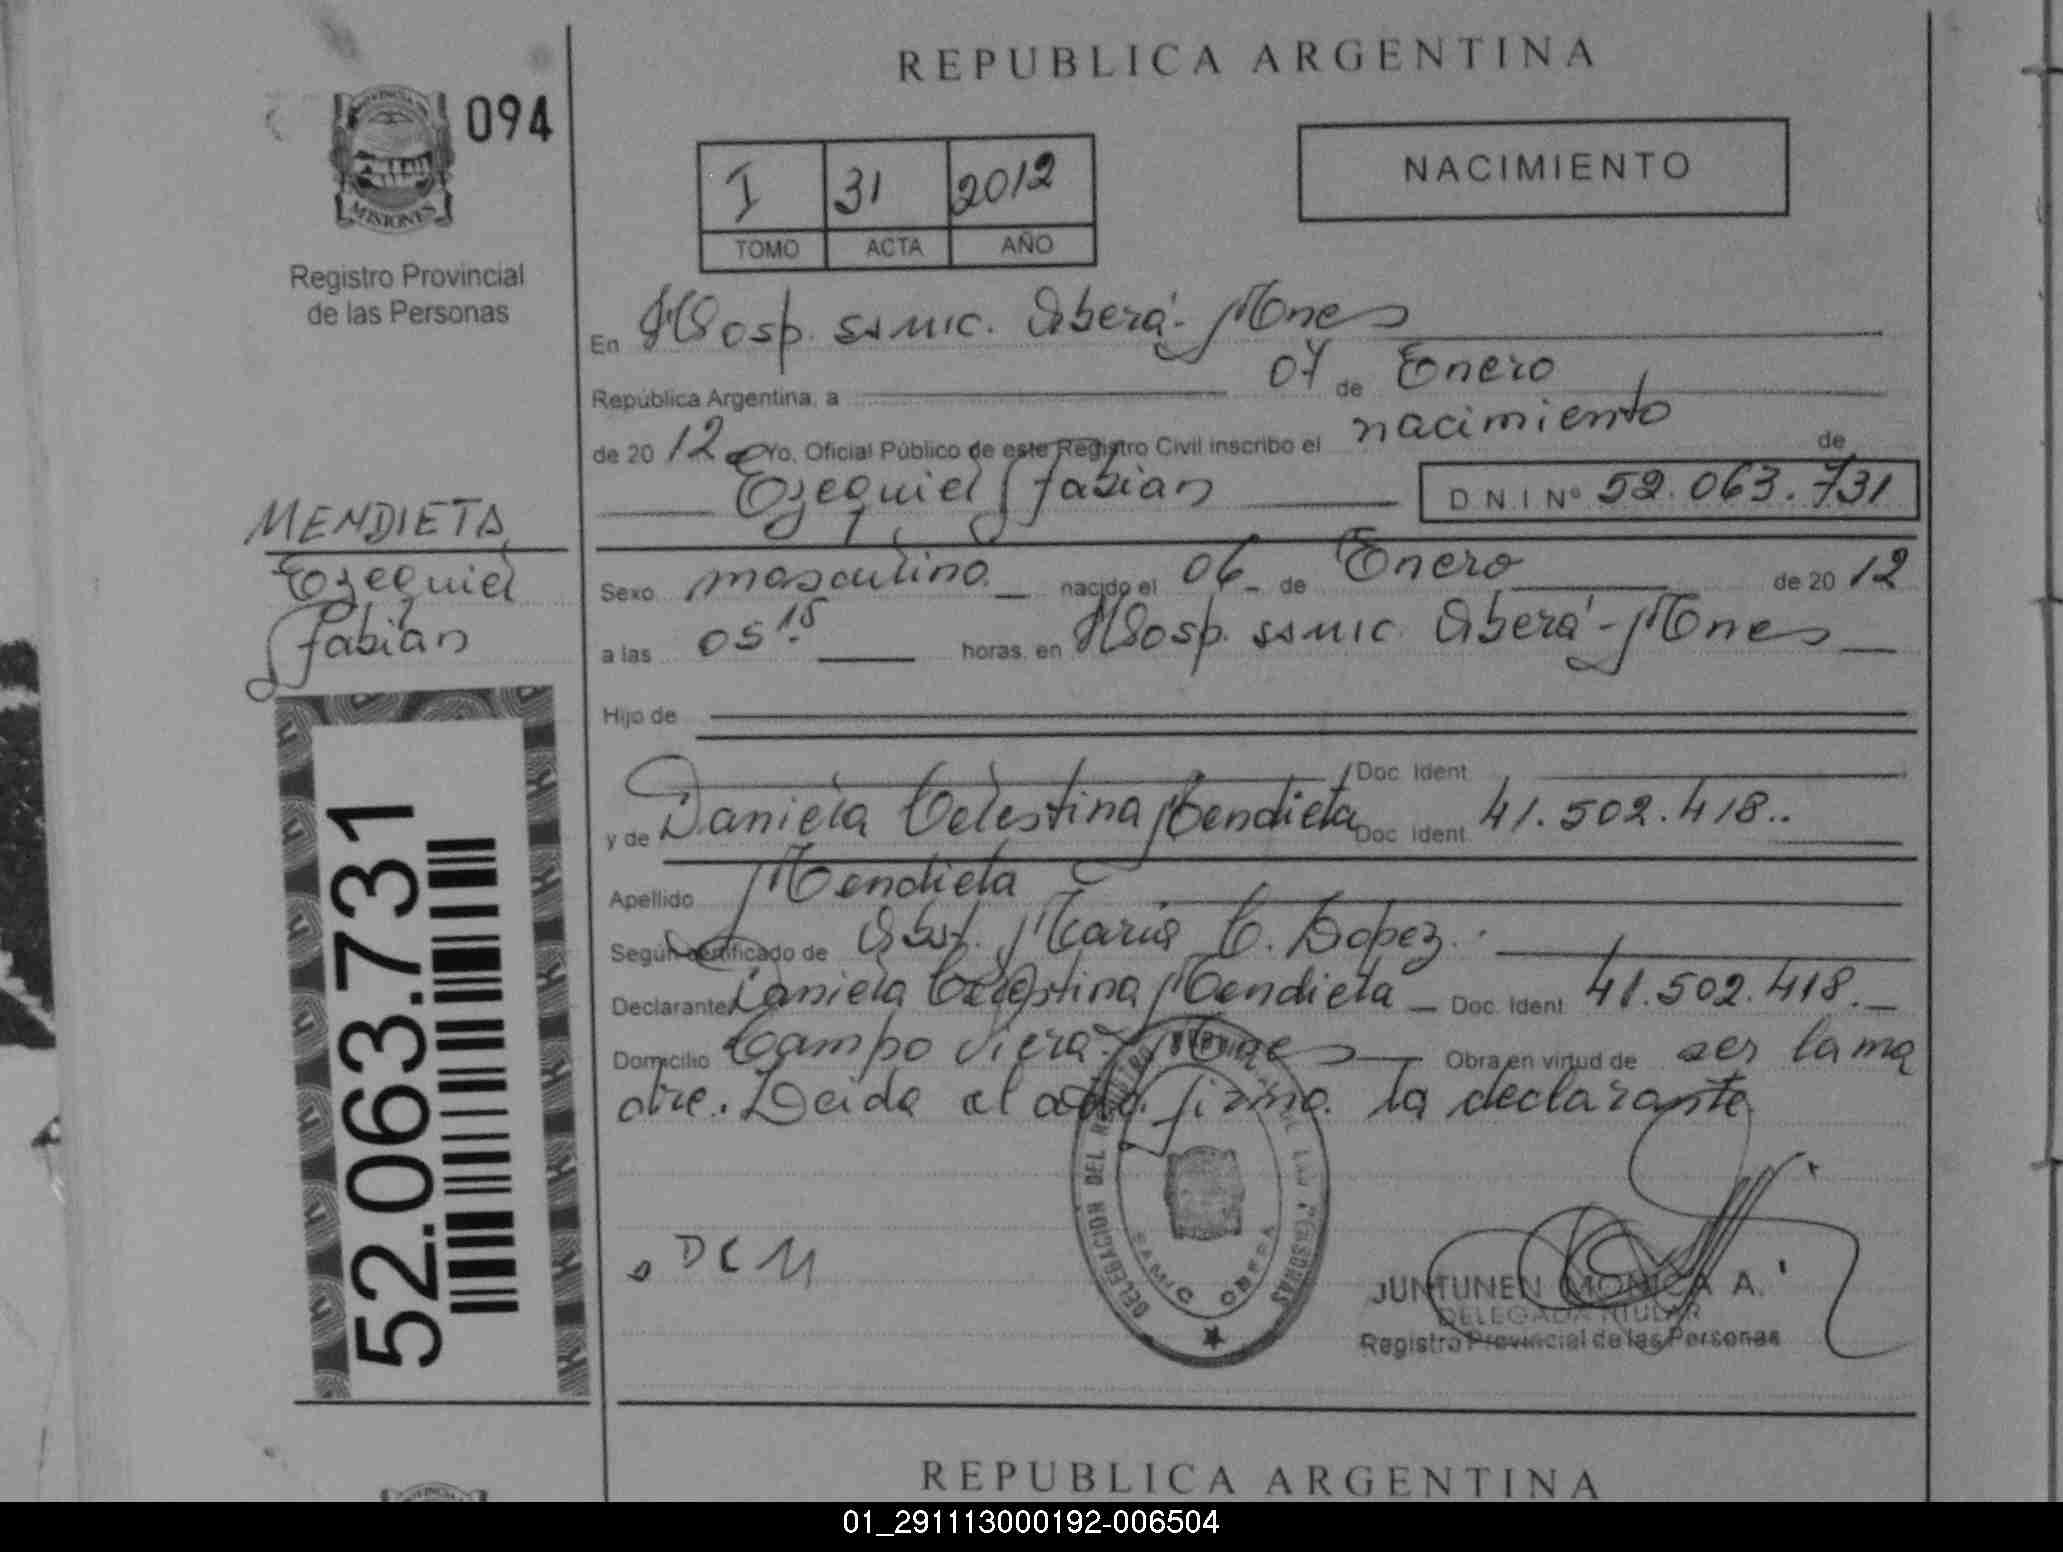 REPUBLICA ARGENTINA
094
PROVINCIA DE
MISIONES
Registro Provincial
de las Personas
I 31 2012
TOMO ACTA AÑO
NACIMIENTO
En Hosp. SAMIC. Oberá - Mnes
República Argentina, a 07 de Enero
de 20 12 Yo, Oficial Público de este Registro Civil inscribo el nacimiento de
Ezequiel Fabian D.N.I Nº 52.063.731
MENDIETA
Ezequiel
Fabian
Sexo masculino nacido el 06 de Enero de 20 12
a las 05 15 horas, en Hosp. SAMIC. Oberá - Mnes
Hijo de
Doc. Ident.
y de Daniela Celestina Mendieta Doc. Ident. 41.502.418..
Apellido Mendieta
Según certificado de Obst. Maria C. Lopez.
Declarante Daniela Celestina Mendieta Doc. Ident. 41.502.418.
Domicilio Campo Viera - Mnes Obra en virtud de ser la ma
dre. Leida el acta. firma. la declarante
52.063.731
DCM
DELEGACION DEL REGISTRO PROVINCIAL DE LAS PERSONAS
SAMIC OBERA
JUNTUNEN MONICA A.
DELEGADA TITULAR
Registro Provincial de las Personas
REPUBLICA ARGENTINA
01_291113000192-006504